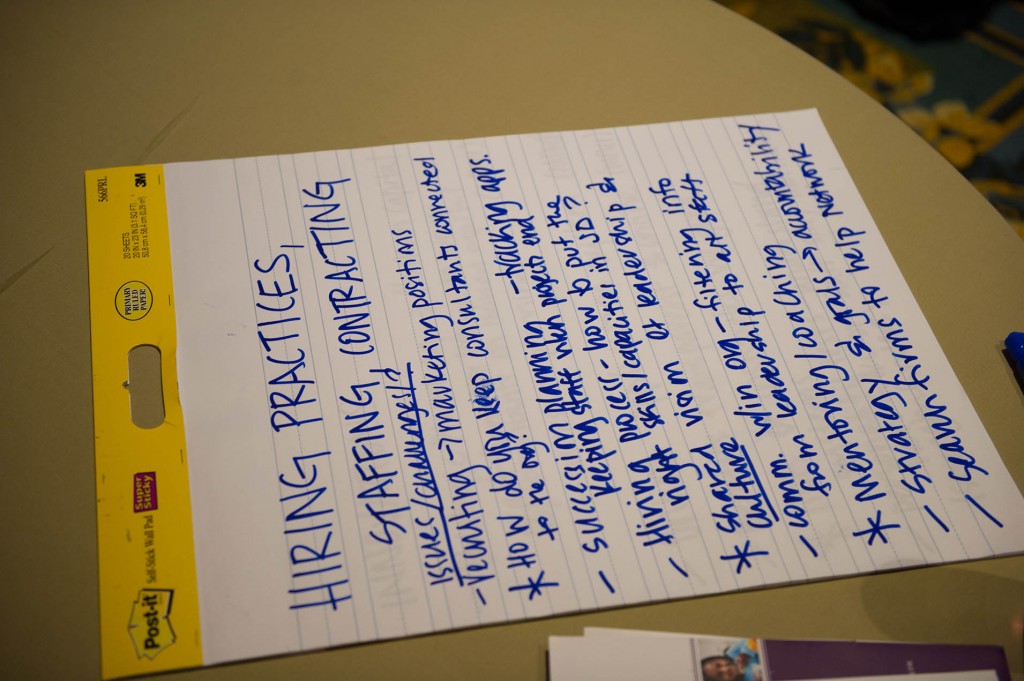 Post-it
Self-Stick Wall Pad
Super
Sticky
PRIMARY
RULED
PAPER!
20 SHEETS
20 IN x 23 IN (3.1 SQ FT)
50,8 cm x 58,4 cm (0.29 m²)
3M
566PRL
HIRING PRACTICES,
STAFFING, CONTRACTING
issues/challenges/?
- recruiting → marketing positions
* How do you keep consultants connected
to the org? - tracking apps.
- succession planning
keeping staff when projects end
- Hiring process - how to put the
right skills/capacities in JD?
* Shared vision at leadership &
culture w/in org - filtering info
- comm. leadership to all staff
from
* Mentoring/coaching accountability
- Strategy & goals →
- search firms to help network